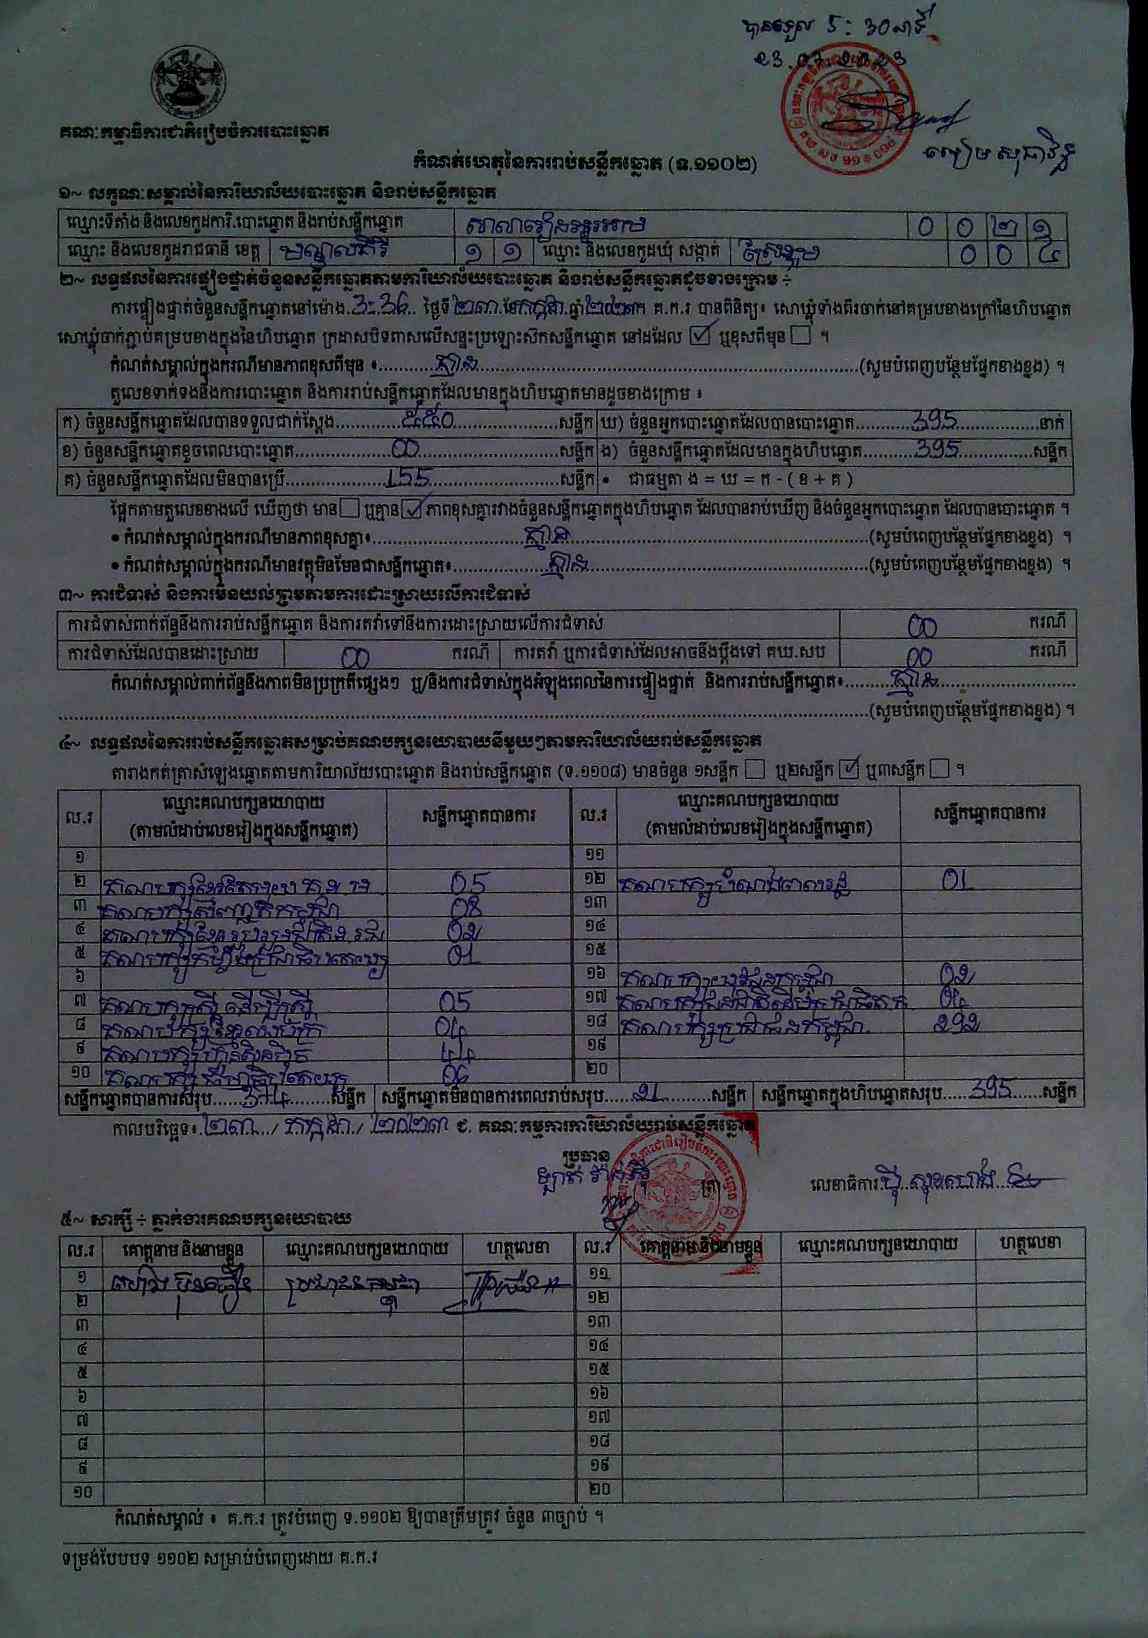 បានទទួល 5: 30នាទី
23.07.2023
គណៈកម្មាធិការជាតិរៀបចំការបោះឆ្នោត
កំណត់ហេតុនៃការរាប់សន្លឹកឆ្នោត (ទ.១១០២)
១~ លក្ខណៈសម្គាល់នៃការិយាល័យបោះឆ្នោត និងរាប់សន្លឹកឆ្នោត
ឈ្មោះទីតាំង និងលេខកូដការិ.បោះឆ្នោត និងរាប់សន្លឹកឆ្នោត ០ ០ ២ ១
ឈ្មោះ និងលេខកូដរាជធានី ខេត្ត មណ្ឌលគិរី ១ ១ ឈ្មោះ និងលេខកូដឃុំ សង្កាត់ ០ ០ ៤
២~ លទ្ធផលនៃការផ្ទៀងផ្ទាត់ចំនួនសន្លឹកឆ្នោតតាមការិយាល័យបោះឆ្នោត និងរាប់សន្លឹកឆ្នោតដូចខាងក្រោម ÷
ការផ្ទៀងផ្ទាត់ចំនួនសន្លឹកឆ្នោតនៅម៉ោង 3:36 ថ្ងៃទី២៣ ខែកក្កដា ឆ្នាំ២០២៣ គ.ក.រ បានពិនិត្យ៖ សោឃ្លុំទាំងពីរចាក់នៅគម្របខាងក្រៅនៃហិបឆ្នោត
សោឃ្លុំចាក់ភ្ជាប់គម្របខាងក្នុងនៃហិបឆ្នោត ក្រដាសបិទពាសលើសន្ទះប្រឡោះស៊កសន្លឹកឆ្នោត នៅដដែល ☑ ឬខុសពីមុន ☐ ។
កំណត់សម្គាល់ក្នុងករណីមានភាពខុសពីមុន ៖ គ្មាន (សូមបំពេញបន្ថែមផ្នែកខាងខ្នង) ។
តួលេខទាក់ទងនឹងការបោះឆ្នោត និងការរាប់សន្លឹកឆ្នោតដែលមានក្នុងហិបឆ្នោតមានដូចខាងក្រោម ៖
ក) ចំនួនសន្លឹកឆ្នោតដែលបានទទួលជាក់ស្តែង ៥៥០ សន្លឹក ឃ) ចំនួនអ្នកបោះឆ្នោតដែលបានបោះឆ្នោត 395 នាក់
ខ) ចំនួនសន្លឹកឆ្នោតខូចពេលបោះឆ្នោត 00 សន្លឹក ង) ចំនួនសន្លឹកឆ្នោតដែលមានក្នុងហិបឆ្នោត 395 សន្លឹក
គ) ចំនួនសន្លឹកឆ្នោតដែលមិនបានប្រើ 155 សន្លឹក • ជាធម្មតា ង = ឃ = ក - ( ខ + គ )
ផ្អែកតាមតួលេខខាងលើ ឃើញថា មាន ☐ ឬគ្មាន ☑ ភាពខុសគ្នារវាងចំនួនសន្លឹកឆ្នោតក្នុងហិបឆ្នោត ដែលបានរាប់ឃើញ និងចំនួនអ្នកបោះឆ្នោត ដែលបានបោះឆ្នោត ។
• កំណត់សម្គាល់ក្នុងករណីមានភាពខុសគ្នា៖ គ្មាន (សូមបំពេញបន្ថែមផ្នែកខាងខ្នង) ។
• កំណត់សម្គាល់ក្នុងករណីមានវត្ថុមិនមែនជាសន្លឹកឆ្នោត៖ គ្មាន (សូមបំពេញបន្ថែមផ្នែកខាងខ្នង) ។
៣~ ការជំទាស់ និងការមិនយល់ព្រមតាមការដោះស្រាយលើការជំទាស់
ការជំទាស់ពាក់ព័ន្ធនឹងការរាប់សន្លឹកឆ្នោត និងការតវ៉ាទៅនឹងការដោះស្រាយលើការជំទាស់ 00 ករណី
ការជំទាស់ដែលបានដោះស្រាយ 00 ករណី ការតវ៉ា ឬការជំទាស់ដែលអាចនឹងប្តឹងទៅ គឃ.សប 00 ករណី
កំណត់សម្គាល់ពាក់ព័ន្ធនឹងភាពមិនប្រក្រតីផ្សេងៗ ឬ/និងការជំទាស់ក្នុងអំឡុងពេលនៃការផ្ទៀងផ្ទាត់ និងការរាប់សន្លឹកឆ្នោត៖ គ្មាន
(សូមបំពេញបន្ថែមផ្នែកខាងខ្នង) ។
៤~ លទ្ធផលនៃការរាប់សន្លឹកឆ្នោតសម្រាប់គណបក្សនយោបាយនីមួយៗតាមការិយាល័យរាប់សន្លឹកឆ្នោត
តារាងកត់ត្រាសំឡេងឆ្នោតតាមការិយាល័យបោះឆ្នោត និងរាប់សន្លឹកឆ្នោត (ទ.១១០៨) មានចំនួន ១សន្លឹក ☐ ឬ២សន្លឹក ☑ ឬ៣សន្លឹក ☐ ។
ល.រ ឈ្មោះគណបក្សនយោបាយ (តាមលំដាប់លេខរៀងក្នុងសន្លឹកឆ្នោត) សន្លឹកឆ្នោតបានការ ល.រ ឈ្មោះគណបក្សនយោបាយ (តាមលំដាប់លេខរៀងក្នុងសន្លឹកឆ្នោត) សន្លឹកឆ្នោតបានការ
១ ១១
២ 05 ១២ 01
៣ 08 ១៣
៤ 02 ១៤
៥ គណបក្សកម្លាំងប្រជាធិបតេយ្យ 01 ១៥
៦ ១៦ 02
៧ គណបក្សស្ត្រីដើម្បីស្ត្រី 05 ១៧ 04
៨ គណបក្សខ្មែររួបរួម 04 ១៨ គណបក្សប្រជាជនកម្ពុជា 292
៩ គណបក្សហ៊្វុនស៊ិនប៉ិច 44 ១៩
១០ 06 ២០
សន្លឹកឆ្នោតបានការសរុប 374 សន្លឹក សន្លឹកឆ្នោតមិនបានការពេលរាប់សរុប 21 សន្លឹក សន្លឹកឆ្នោតក្នុងហិបឆ្នោតសរុប 395 សន្លឹក
កាលបរិច្ឆេទ៖ ២៣ / កក្កដា / ២០២៣ ជ. គណៈកម្មការការិយាល័យរាប់សន្លឹកឆ្នោត
ប្រធាន
ត្រា លេខាធិការ
៥~ សាក្សី ÷ ភ្នាក់ងារគណបក្សនយោបាយ
ល.រ គោត្តនាម និងនាមខ្លួន ឈ្មោះគណបក្សនយោបាយ ហត្ថលេខា ល.រ គោត្តនាម និងនាមខ្លួន ឈ្មោះគណបក្សនយោបាយ ហត្ថលេខា
១ ប្រជាជនកម្ពុជា ១១
២ ១២
៣ ១៣
៤ ១៤
៥ ១៥
៦ ១៦
៧ ១៧
៨ ១៨
៩ ១៩
១០ ២០
កំណត់សម្គាល់ ៖ គ.ក.រ ត្រូវបំពេញ ទ.១១០២ ឱ្យបានត្រឹមត្រូវ ចំនួន ៣ច្បាប់ ។
ទម្រង់បែបបទ ១១០២ សម្រាប់បំពេញដោយ គ.ក.រ